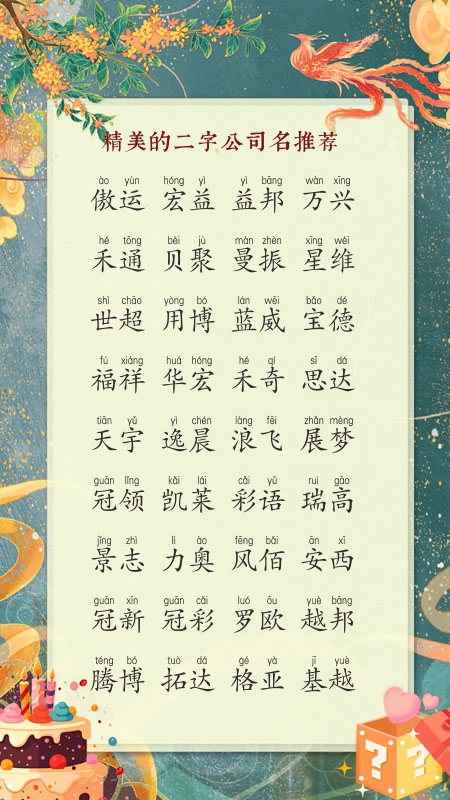 精美的二字公司名推荐
ào yùn hóng yì yì bāng wàn xīng
傲运 宏益 益邦 万兴
hé tōng bèi jù màn zhèn xīng wéi
禾通 贝聚 曼振 星维
shì chāo yòng bó lán wēi bǎo dé
世超 用博 蓝威 宝德
fú xiáng huá hóng hé qí sī dá
福祥 华宏 禾奇 思达
tiān yǔ yì chén làng fēi zhǎn mèng
天宇 逸晨 浪飞 展梦
guān lǐng kǎi lái cǎi yǔ ruì gāo
冠领 凯莱 彩语 瑞高
jǐng zhì lì ào fēng bǎi ān xī
景志 力奥 风佰 安西
guān xīn guān cǎi luó ōu yuè bāng
冠新 冠彩 罗欧 越邦
téng bó tuò dá gé yà jī yuè
腾博 拓达 格亚 基越
? ?